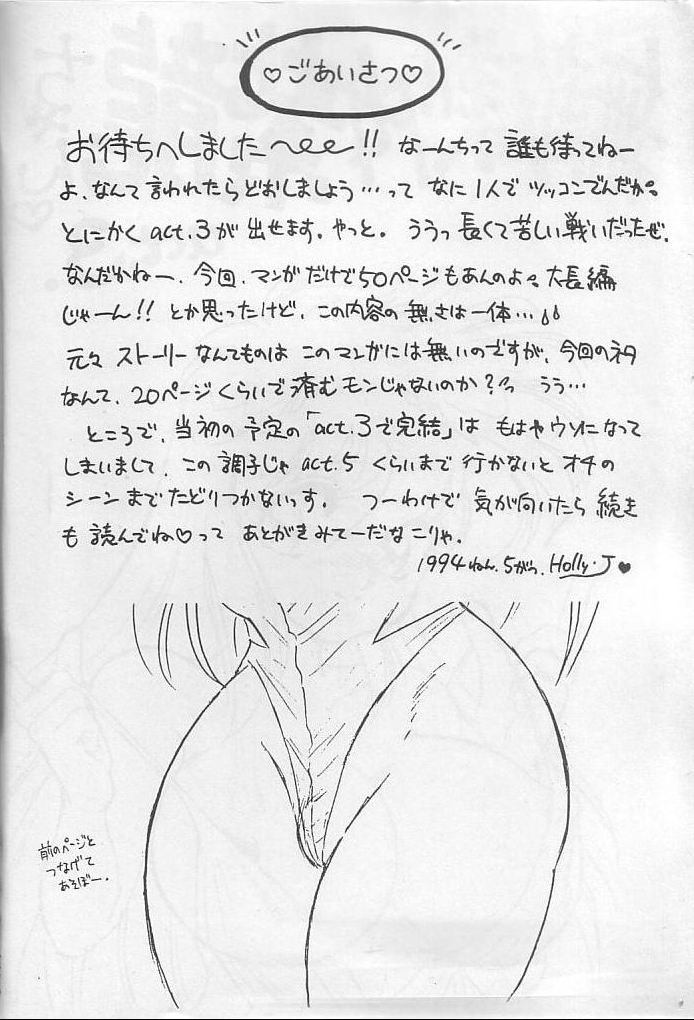 ♡ごあいさつ♡
お待ちへしました〜!! なーんちって 誰も待ってねー
よ、なんて言われたらどおしましょう…って なに1人で ツッコンでんだか。
とにかく act.3が 出せます。やっと。ううっ 長くて苦しい戦いだったぜ。
なんだかねー、今回、マンガだけで50ページもあんのよ。大長編
じゃーん!! とか思ったけど、この内容の無さは一体…
元々 ストーリーなんてものは このマンガには無いのですが、今回のネタ
なんて、20ページくらいで済むモンじゃないのか?? うう…
ところで、当初の予定の「act.3で完結」は もはやウソになって
しまいまして、この調子じゃ act.5 くらいまで行かないと オチの
シーンまでたどりつかないっす。 つーわけで 気が向いたら続き
も 読んでね♡って あとがきみてーだなこりゃ。
1994ねん.5がつ. Holly・J♥
前のページと
つなげて
あそぼー.